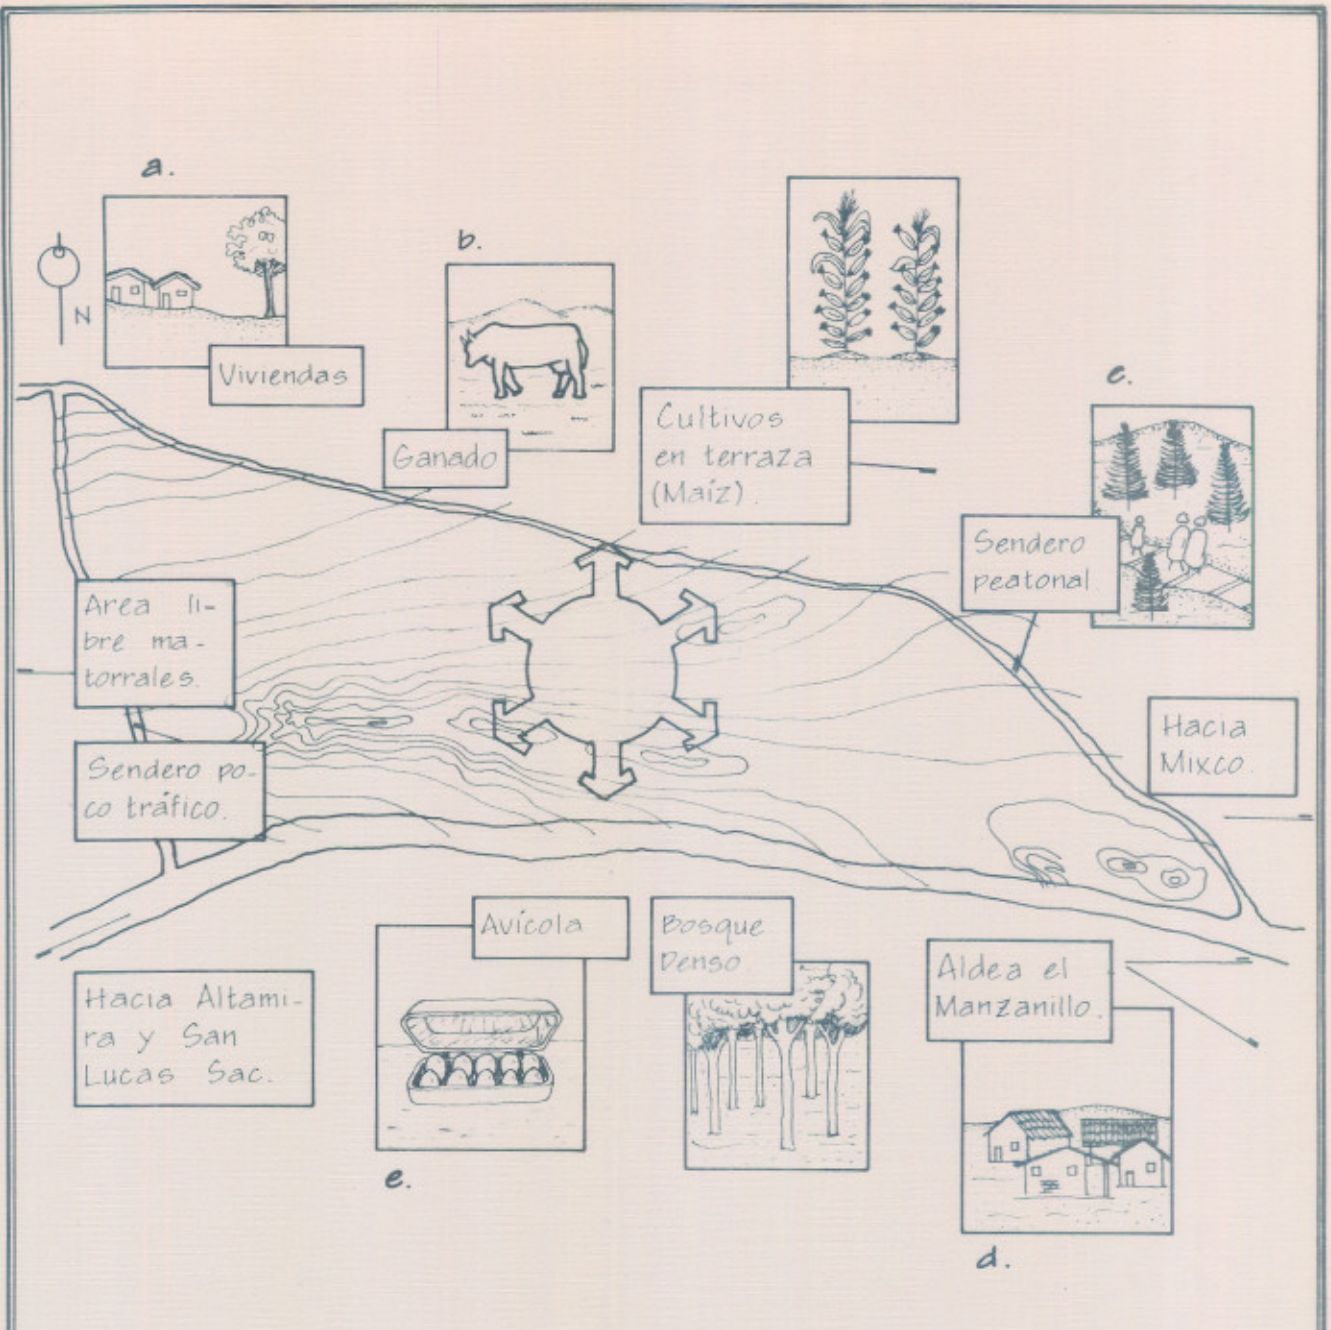 a.
N
Viviendas
b.
Ganado
Cultivos
en terraza
(Maíz).
c.
Sendero
peatonal
Area li-
bre ma-
torrales.
Sendero po-
co tráfico.
Hacia
Mixco.
Hacia Altami-
ra y San
Lucas Sac.
Avícola
e.
Bosque
Denso
Aldea el
Manzanillo.
d.